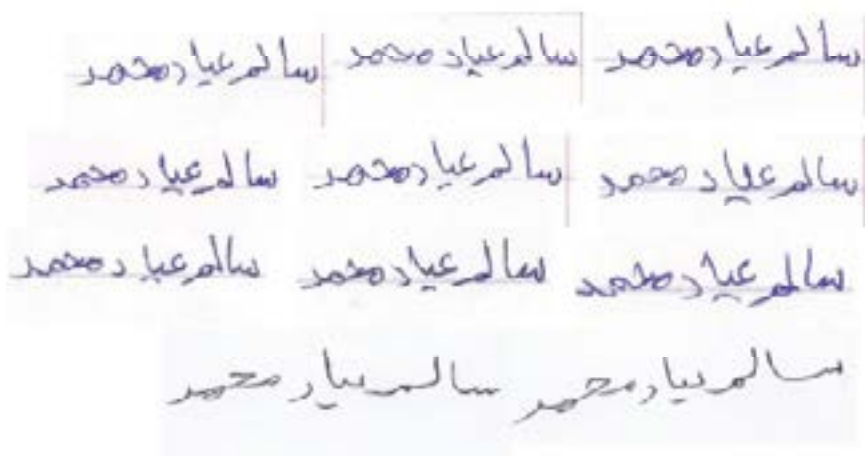 سالم عياد محمد سالم عياد محمد سالم عياد محمد
سالم عياد محمد سالم عياد محمد سالم عياد محمد
سالم عياد محمد سالم عياد محمد سالم عياد محمد
سالم عياد محمد سالم عياد محمد